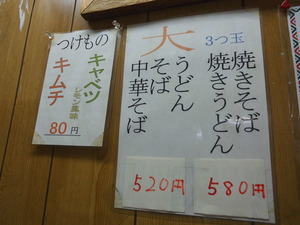 つけもの
キャベツ
レモン風味
キムチ
80円
大
3つ玉
焼きそば
焼きうどん
うどん
そば
中華そば
580円
520円